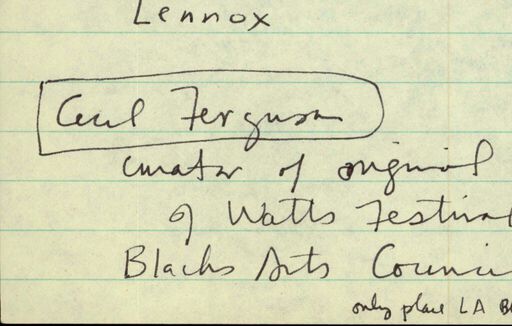 Lennox
Cecil Ferguson
curator of original
of Watts Festival
Blacks Arts Counci
only place LA B